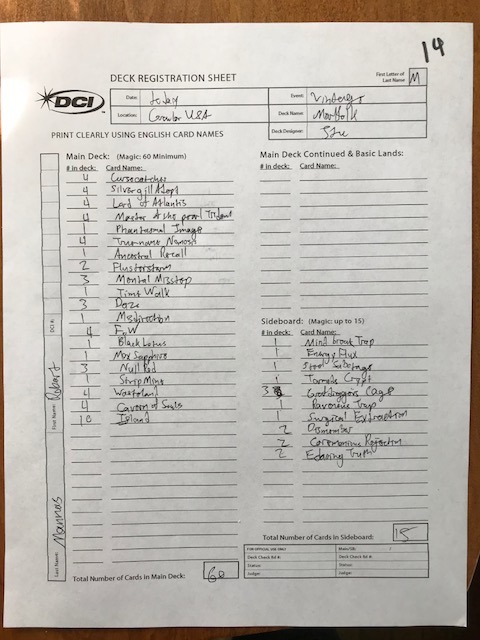 14
DECK REGISTRATION SHEET
First Letter of
Last Name M
DCI
Date: today
Event: Vintage
Location:
USA
Deck Name: Merfolk
Deck Designer: Stu
PRINT CLEARLY USING ENGLISH CARD NAMES
Main Deck: (Magic: 60 Minimum)
# in deck: Card Name:
4 Cursecatcher
4 Silvergill Adept
4 Lord of Atlantis
4 Master of the pearl Trident
1 Phantasmal Image
4 True-name Nemesis
1 Ancestral Recall
2 Flusterstorm
3 Mental Misstep
1 Time Walk
3 Daze
1 Misdirection
4 FoW
1 Black Lotus
1 Mox Sapphire
3 Null Rod
1 Strip Mine
4 Wasteland
4 Cavern of Souls
10 Island
Total Number of Cards in Main Deck: 60
Main Deck Continued & Basic Lands:
# in deck: Card Name:
Sideboard: (Magic: up to 15)
# in deck: Card Name:
1 Mind break Trap
1 Energy Flux
1 Steel Sabotage
1 Tormods Crypt
3 Grafdiggers Cage
1 Ravenous Trap
1 Surgical Extraction
2 Dismember
2 Ceremonious Rejection
2 Echoing Truth
Total Number of Cards in Sideboard: 15
FOR OFFICIAL USE ONLY
Main/SB: /
Deck Check Rd #:
Deck Check Rd #:
Status:
Status:
Judge:
Judge:
DCI #:
First Name: Robert
Last Name: